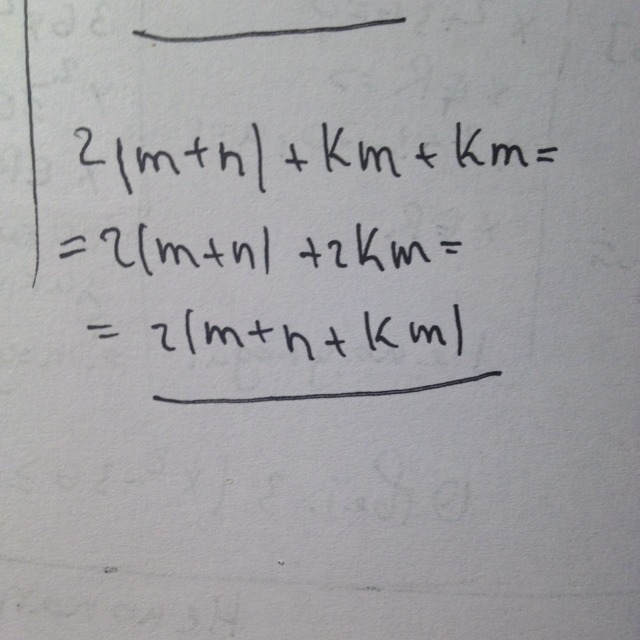 2(m+n)+Km+Km=
=2(m+n)+2Km=
=2(m+n+Km)